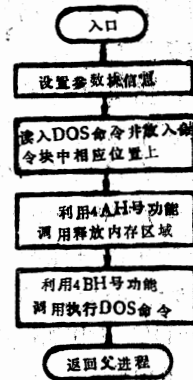 入口
设置参数块信息
读入DOS命令并放入命
令块中相应位置上
利用4AH号功能
调用释放内存区域
利用4BH号功能
调用执行DOS命令
返回父进程